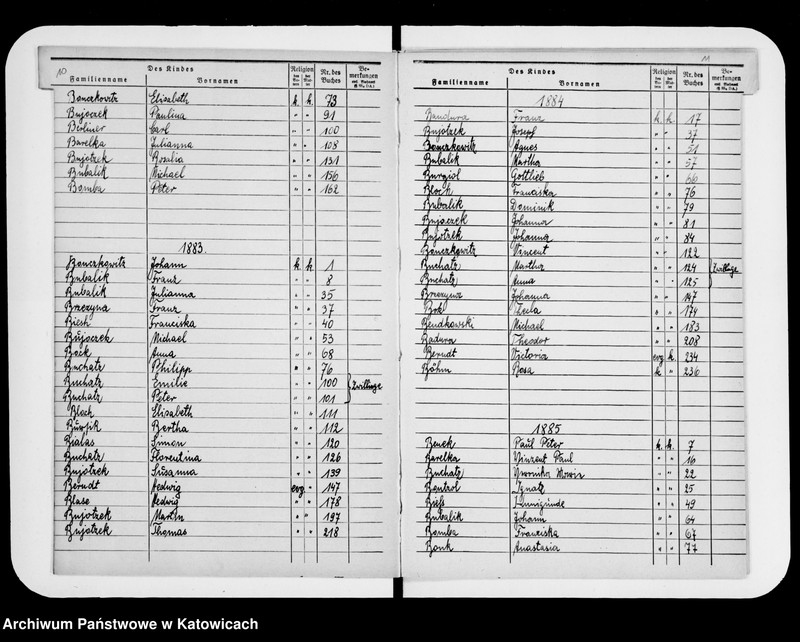 10
Des Kindes
Religion
Nr. des Buches
Bemerkungen
Familienname
Vornamen
Bonczkowitz Elisabeth k. k. 73
Bujoczek Paulina " " 91
Berliner Carl " " 100
Bavelka Julianna " " 108
Bujotzek Rosalia " " 131
Bubalik Michael " " 156
Bomba Peter " " 162
1883.
Bonczkowitz Johann k. k. 1
Bubalik Franz " " 8
Bubalik Julianna " " 35
Brzezyna Franz " " 37
Biesh Franciska " " 40
Bujoczek Michael " " 53
Bock Anna " " 68
Buchatz Philipp " " 76
Buchatz Emilie " " 100 Zwillinge
Buchatz Peter " " 101
Bloch Elisabeth " " 111
Bertha " " 112
Bialas Simon " " 120
Buchatz Florentina " " 126
Bujotzek Susanna " " 139
Berndt Hedwig evg. " 147
Blase Hedwig " " 178
Bujotzek Martin " " 197
Bujotzek Thomas " " 218
11
Des Kindes
Religion
Nr. des Buches
Bemerkungen
Familienname
Vornamen
1884
Bandura Franz k. k. 17
Bujotzek Josepf " " 37
Bonczkowitz Agnes " " 51
Bubalik Martha " " 57
Burgiol Gottlieb " " 66
Bloch Franciska " " 76
Bubalik Dominik " " 79
Bujoczek Johanna " " 81
Bujotzek Johanna " " 84
Bonczkowitz Vincent " " 122
Buchatz Martha " " 124 Zwillinge
Buchatz Anna " " 125
Brzezyna Johanna " " 147
Thecla " " 174
Bendkowski Michael " " 183
Badura Theodor " " 208
Berndt Victoria evg. k. 234
Böhm Rosa k " 236
1885
Benek Paul Peter k. k. 7
Barelka Vinzent Paul " " 16
Buchatz Veronika " " 22
Bentzol Ignatz " " 25
Kunigünde " " 49
Bubalik Johann " " 64
Bomba Franziska " " 67
Bonk Anastasia " " 77
Archiwum Państwowe w Katowicach